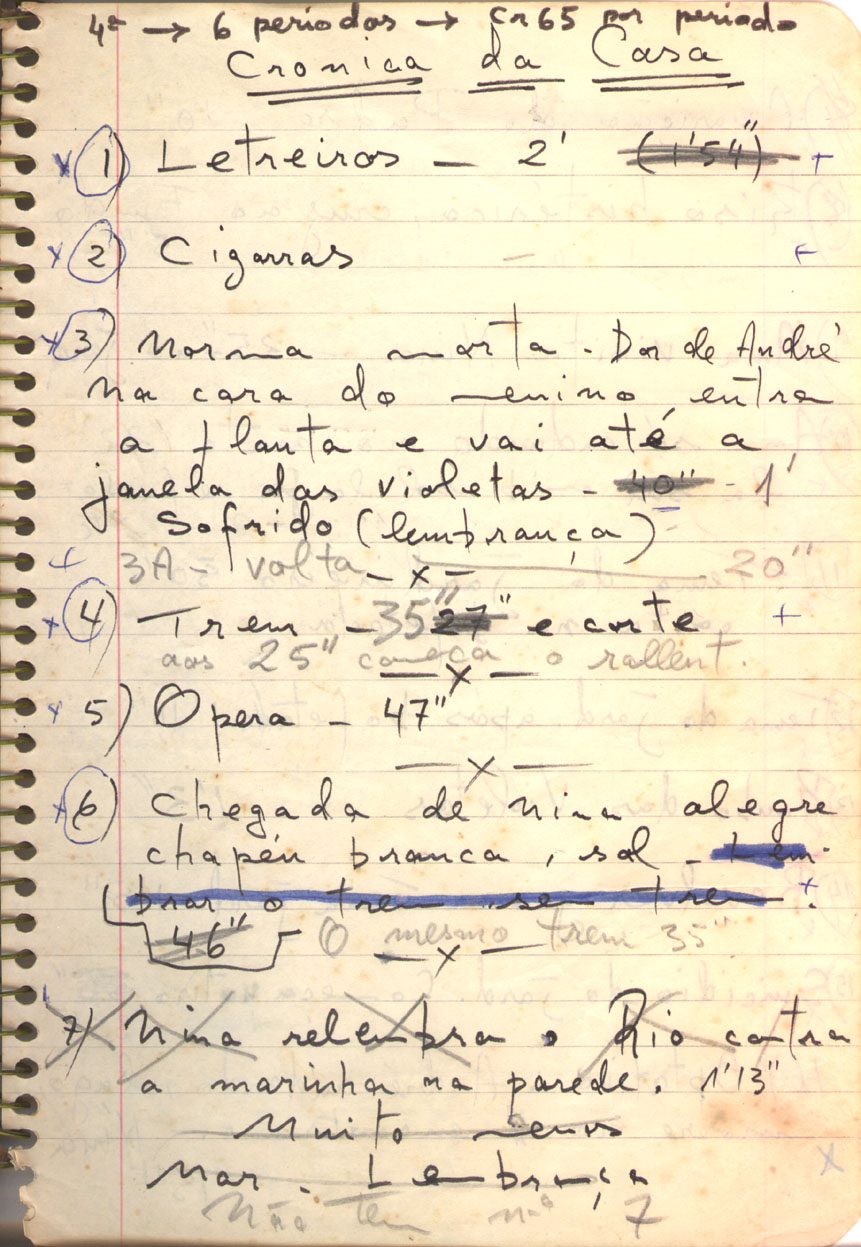 4ª → 6 periodos → Cr 65 por periodo
Cronica da Casa
x 1) Letreiros - 2' (1'54") +
x 2) Cigarras - +
x 3) Norma morta - Dor de André
na cara do menino, entra
a flauta e vai até a
janela das violetas - 40" - 1'
Sofrido (lembrança)
+ 3A - volta 20"
- x -
x 4) Trem - 35" 27" e corte +
aos 25" começa o rallent.
- x -
x 5) Opera - 47"
- x -
x 6) Chegada de Nina alegre
chapéu branca, sol - Lem-
brar o trem sem trem. +
46" O mesmo trem 35"
- x -
7) Nina relembra o Rio contra
a marinha na parede. 1'13"
Muito menos
Mar. Lembrança x
Não tem nº 7